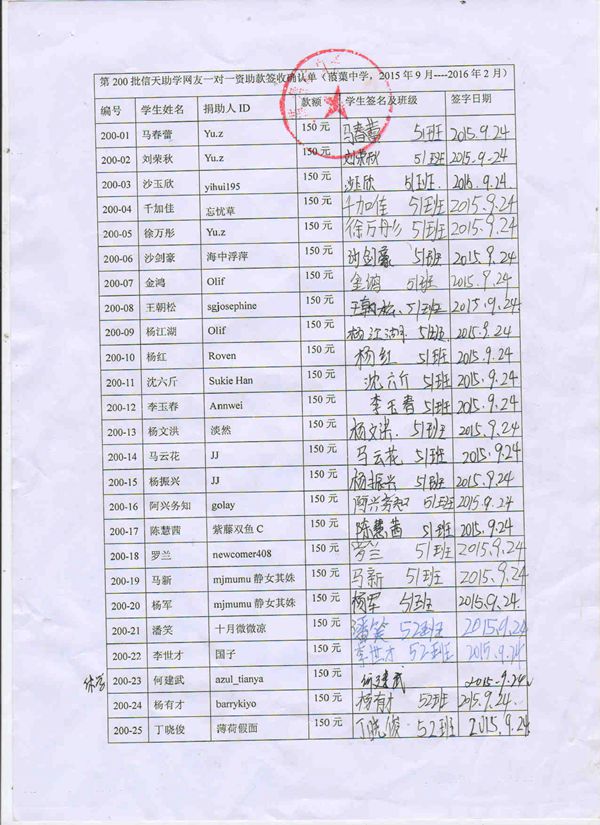 第 200 批信天助学网友一对一资助款签收确认单（蔬菜中学，2015 年 9 月----2016 年 2 月）
编号 学生姓名 捐助人 ID 款额 学生签名及班级 签字日期
200-01 马春蕾 Yu.z 150 元 马春蕾 51班 2015.9.24
200-02 刘荣秋 Yu.z 150 元 刘荣秋 51班 2015.9.24
200-03 沙玉欣 yihui195 150 元 沙玉欣 51班. 2015.9.24.
200-04 千加佳 忘忧草 150 元 千加佳 51班 2015.9.24
200-05 徐万彤 Yu.z 150 元 徐万彤 51班 2015.9.24
200-06 沙剑豪 海中浮萍 150 元 沙剑豪 51班 2015.9.24
200-07 金鸿 Olif 150 元 金鸿 51班 2015.9.24
200-08 王朝松 sgjosephine 150 元 王朝松. 51班 2015.9.24
200-09 杨江湖 Olif 150 元 杨江湖 51班. 2015.9.24
200-10 杨红 Roven 150 元 杨红 51班 2015.9.24
200-11 沈六斤 Sukie Han 150 元 沈六斤 51班 2015.9.24
200-12 李玉春 Annwei 150 元 李玉春 51班 2015.9.24
200-13 杨文洪 淡然 150 元 杨文洪. 51班 2015.9.24.
200-14 马云花 JJ 150 元 马云花 51班 2015.9.24
200-15 杨振兴 JJ 150 元 杨振兴 51班 2015.9.24
200-16 阿兴务知 golay 150 元 阿兴务知 51班 2015.9.24
200-17 陈慧茜 紫藤双鱼 C 150 元 陈慧茜 51班 2015.9.24
200-18 罗兰 newcomer408 150 元 罗兰 51班 2015.9.24
200-19 马新 mjmumu 静女其姝 150 元 马新 51班 2015.9.24
200-20 杨军 mjmumu 静女其姝 150 元 杨军 51班 2015.9.24.
200-21 潘笑 十月微微凉 150 元 潘笑 52班 2015.9.24
200-22 李世才 国子 150 元 李世才 52班 2015.9.24
休学 200-23 何建武 azul_tianya 150 元 何建武 2015.9.24
200-24 杨有才 barrykiyo 150 元 杨有才 52班 2015.9.24.
200-25 丁晓俊 薄荷假面 150 元 丁晓俊 52班 2015.9.24